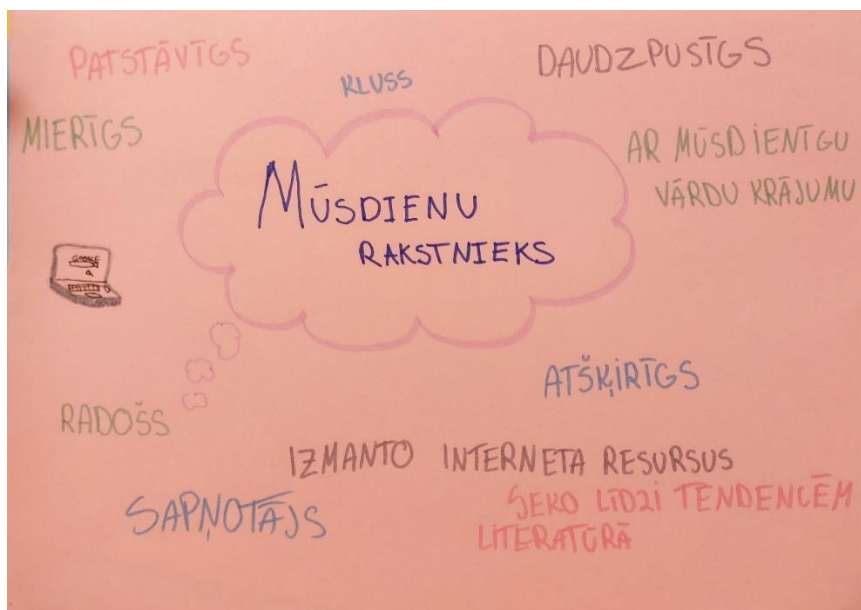 PATSTĀVĪGS
KLUSS
DAUDZPUSĪGS
MIERĪGS
AR MŪSDIENĪGU
VĀRDU KRĀJUMU
MŪSDIENU
RAKSTNIEKS
GOOGLE
ATŠĶIRĪGS
RADOŠS
IZMANTO INTERNETA RESURSUS
SAPŅOTĀJS
SEKO LĪDZI TENDENCĒM
LITERATŪRĀ